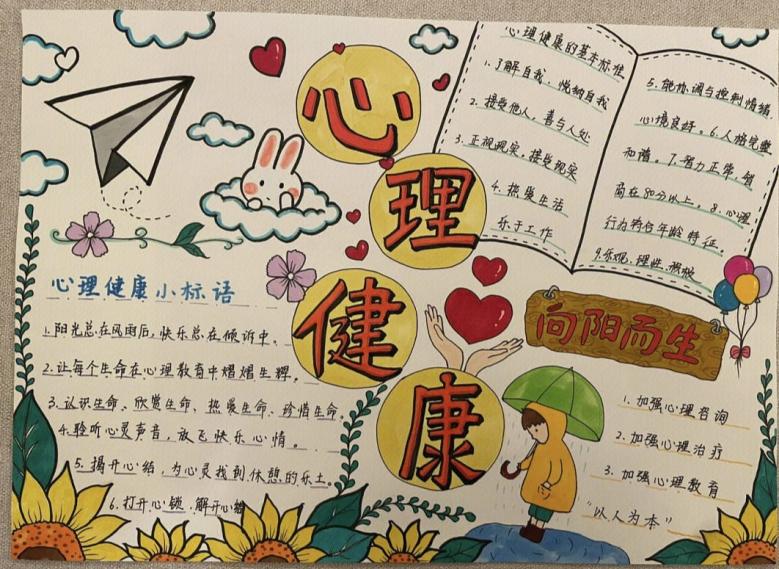 心理健康
心理健康的基本标准
1.了解自我、悦纳自我
2.接受他人，善与人处
3.正视现实，接受现实
4.热爱生活
乐于工作
5.能协调与控制情绪
心境良好。6.人格完整
和谐。7.智力正常，智
商在80分以上。8.心理
行为符合年龄特征。
9.乐观、理性、积极
心理健康小标语
1.阳光总在风雨后，快乐总在倾诉中。
2.让每个生命在心理教育中熠熠生辉。
3.认识生命、欣赏生命、热爱生命、珍惜生命。
4.聆听心灵声音，放飞快乐心情。
5.揭开心结，为心灵找到休憩的乐土。
6.打开心锁，解开心结
向阳而生
1.加强心理咨询
2.加强心理治疗
3.加强心理教育
“以人为本”